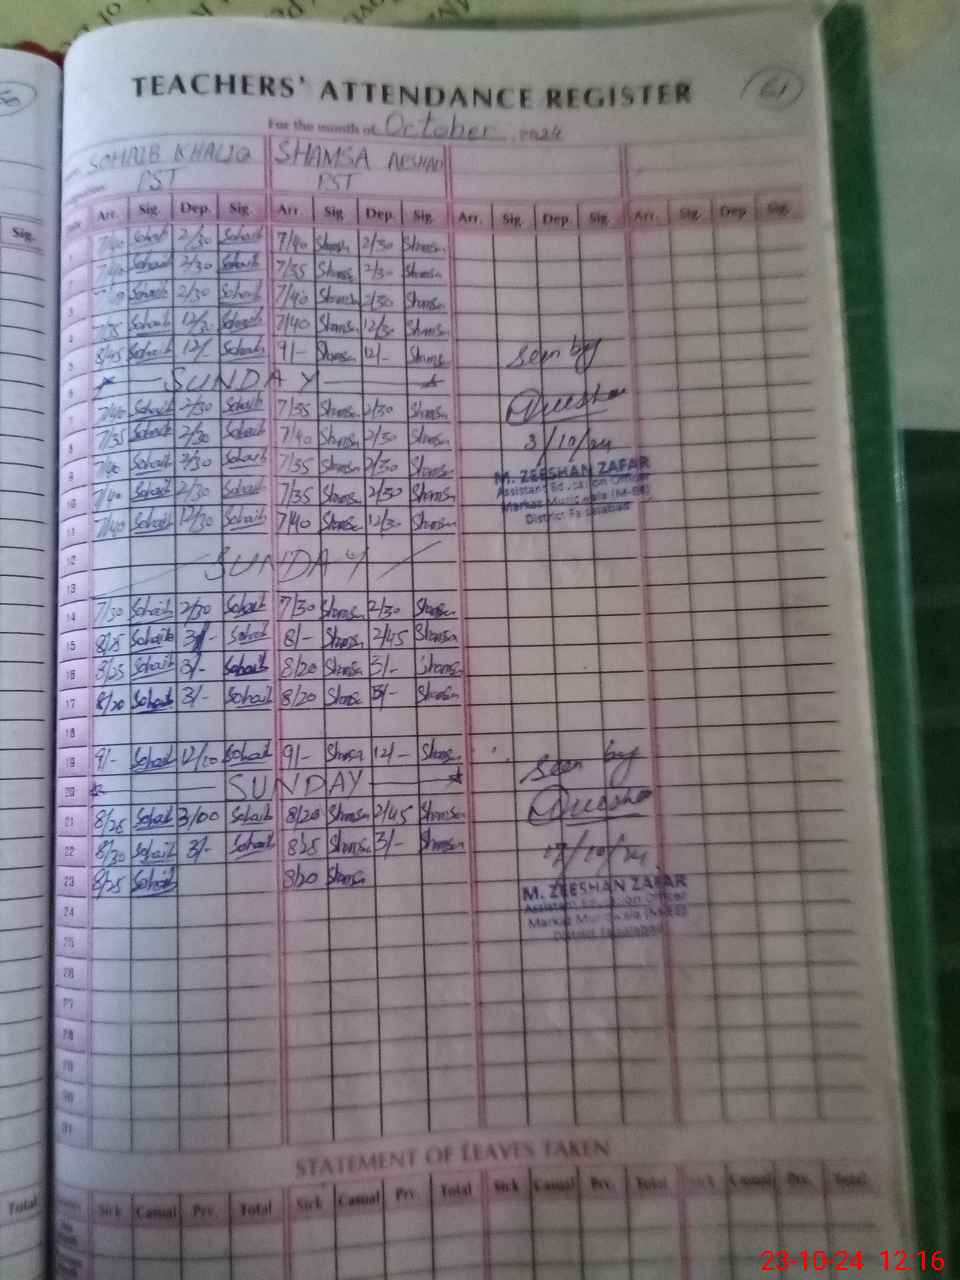 TEACHERS' ATTENDANCE REGISTER
61
For the month of October, 2024
SOHAIB KHALIQ SHAMSA ARSHAD
PST PST
Sig. Date Arr. Sig. Dep. Sig. Arr. Sig. Dep. Sig. Arr. Sig. Dep. Sig. Arr. Sig. Dep. Sig.
1 7/40 Sohaib 2/30 Sohaib 7/40 Shamsa 2/30 Shamsa
2 7/40 Sohaib 2/30 Sohaib 7/35 Shamsa 2/30 Shamsa
3 Sohaib 2/30 Sohaib 7/40 Shamsa 2/30 Shamsa
4 7/35 Sohaib 12/30 Sohaib 7/40 Shamsa 12/30 Shamsa
5 8/45 Sohaib 12/- Sohaib 9/- Shamsa 12/- Shamsa
6 SUNDAY
7 7/40 Sohaib 2/30 Sohaib 7/35 Shamsa 2/30 Shamsa
8 7/35 Sohaib 2/30 Sohaib 7/40 Shamsa 2/30 Shamsa
9 7/40 Sohaib 2/30 Sohaib 7/35 Shamsa 2/30 Shamsa
10 7/40 Sohaib 2/30 Sohaib 7/35 Shamsa 2/30 Shamsa
11 7/40 Sohaib 12/30 Sohaib 7/40 Shamsa 12/30 Shamsa
12
SUNDAY
13
14 7/30 Sohaib 2/30 Sohaib 7/30 Shamsa 2/30 Shamsa
15 8/25 Sohaib 3/- Sohaib 8/- Shamsa 2/45 Shamsa
16 8/25 Sohaib 3/- Sohaib 8/20 Shamsa 3/- Shamsa
17 8/20 Sohaib 3/- Sohaib 8/20 Shamsa 3/- Shamsa
18
19 9/- Sohaib 12/00 Sohaib 9/- Shamsa 12/- Shamsa
20 SUNDAY
21 8/25 Sohaib 3/00 Sohaib 8/20 Shamsa 2/45 Shamsa
22 8/30 Sohaib 3/- Sohaib 8/25 Shamsa 3/- Shamsa
23 8/25 Sohaib 8/20 Shamsa
24
25
26
27
28
29
30
31
Seen by
3/10/24
M. ZEESHAN ZAFAR
Assistant Education Officer
Markaz (M-EE)
District Faisalabad
Seen by
17/10/24
M. ZEESHAN ZAFAR
Assistant Education Officer
Markaz (M-EE)
District Faisalabad
STATEMENT OF LEAVES TAKEN
Total Sick Casual Prv. Total Sick Casual Prv. Total Sick Casual Prv. Total Sick Casual Prv. Total
23-10-24 12:16